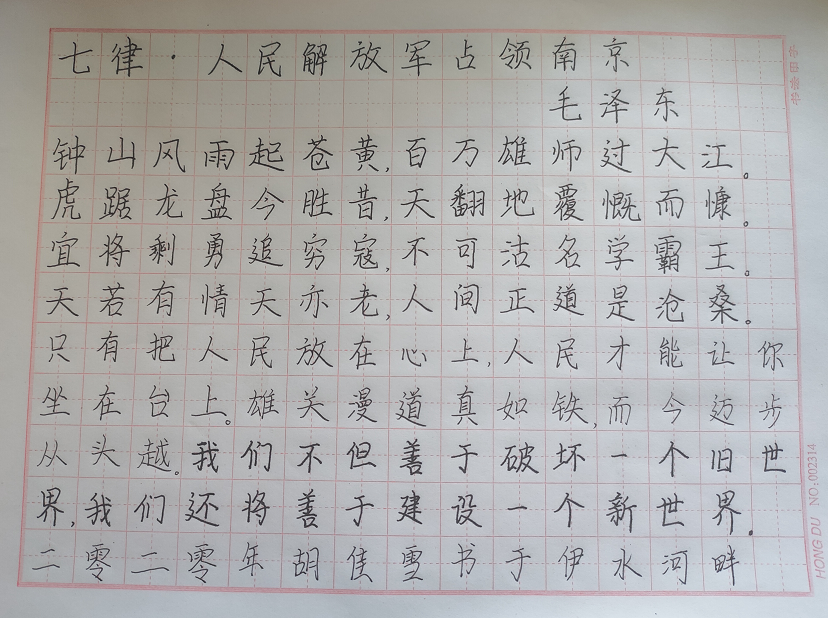 七律·人民解放军占领南京
毛泽东
钟山风雨起苍黄,百万雄师过大江。
虎踞龙盘今胜昔,天翻地覆慨而慷。
宜将剩勇追穷寇,不可沽名学霸王。
天若有情天亦老,人间正道是沧桑。
只有把人民放在心上,人民才能让你
坐在台上。雄关漫道真如铁,而今迈步
从头越。我们不但善于破坏一个旧世
界,我们还将善于建设一个新世界。
二零二零年胡佳雪书于伊水河畔
HONG DU NO:002314